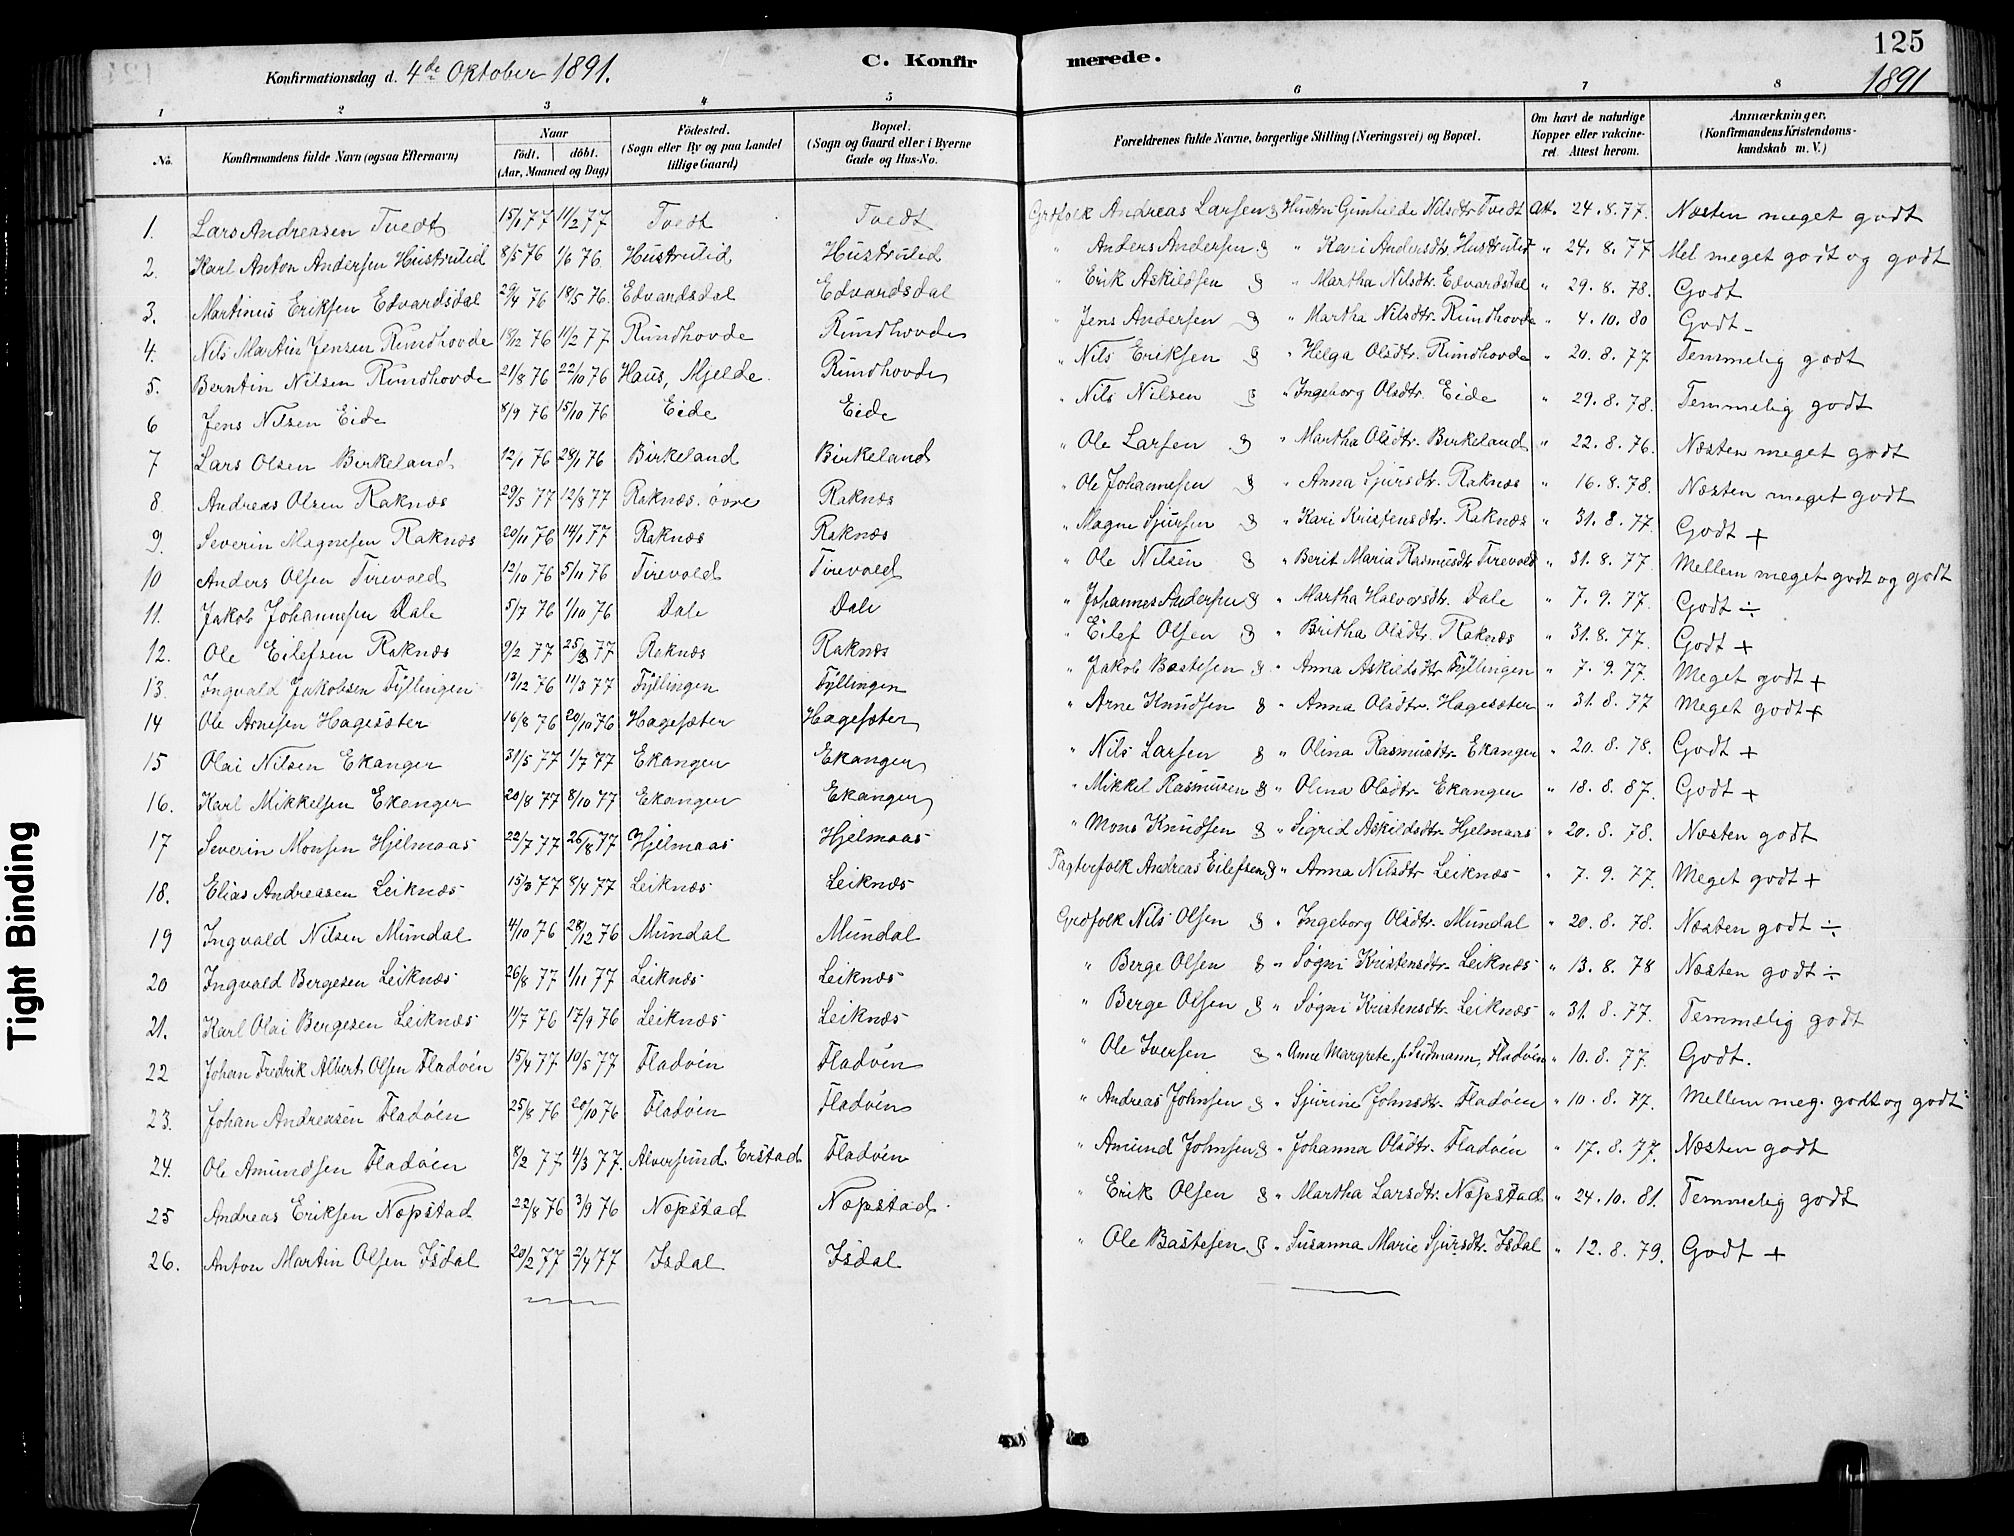 125
Konfirmationsdag d. 4de Oktober 1891. C. Konfirmerede. 1891
1 2 3 4 5 6 7 8
No. Konfirmandens fulde Navn (ogsaa Efternavn) Naar født, døbt. (Aar, Maaned og Dag) Fødested. (Sogn eller By og paa Landet tillige Gaard) Bopæl. (Sogn og Gaard eller i Byerne Gade og Hus-No. Forældrenes fulde Navne, borgerlige Stilling (Næringsvei) og Bopæl. Om havt de naturlige Kopper eller vakcineret. Attest herom. Anmærkninger. (Konfirmandens Kristendomskundskab m. V.)
1. Lars Andreasen Tvedt 15/1 77 11/2 77 Tvedt Tvedt Grdfolk Andreas Larsen & Hustru Gunhilde Nilsdtr Tvedt Att. 24.8.77. Næsten meget godt
2. Karl Anton Andersen Hustrulid 8/5 76 1/6 76 Hustrulid Hustrulid " Anders Andersen & " Kari Andersdtr. Hustrulid " 24.8.77 Mel meget godt og godt
3. Martinus Eriksen Edvardsdal 29/4 76 18/5 76. Edvardsdal Edvardsdal " Erik Askildsen & " Martha Nilsdtr. Edvardsdal " 29.8.78. Godt
4. Nils Martin Jensen Rundhovde 18/12 76 11/2 77 Rundhovde Rundhovde " Jens Andersen & " Martha Nilsdtr. Rundhovde " 4.10.80 Godt
5. Berntin Nilsen Rundhovde 21/8 76 22/10 76 Haus, Mjelde. Rundhovde " Nils Eriksen & " Helga Olsdtr. Rundhovde " 20.8.77 Temmelig godt
6 Jens Nilsen Eide 8/9 76 15/10 76 Eide Eide " Nils Nilsen & " Ingeborg Olsdtr. Eide " 29.8.78. Temmelig godt
7 Lars Olsen Birkeland 12/1 76 28/1 76 Birkeland Birkeland " Ole Larsen & " Martha Olsdtr. Birkeland " 22.8.76. Næsten meget godt
8 Andreas Olsen Raknæs 29/5 77 12/8 77 Raknæs. øvre Raknæs " Ole Johannesen & " Anna Sjursdtr. Raknæs " 16.8.78. Næsten meget godt
9. Severin Magnesen Raknæs 20/11 76 14/1 77 Raknæs Raknæs " Magne Sjursen & " Kari Kristensdtr. Raknæs " 31.8.77. Godt +
10 Anders Olsen Tirevold 12/10 76 5/11 76 Tirevold Tirevold " Ole Nilsen & " Berit Maria Rasmusdtr Tirevold " 31.8.77. Mellem meget godt og godt
11. Jakob Johannesen Dale 5/7 76 1/10 76 Dale Dale " Johannes Andersen & " Martha Halvorsdtr. Dale " 7.9.77. Godt ÷
12. Ole Eilefsen Raknæs 9/2 77 25/3 77 Raknæs Raknæs " Eilef Olsen & " Britha Olsdtr. Raknæs " 31.8.77. Godt +
13. Ingvald Jakobsen Fyllingen 13/12 76 11/3 77 Fyllingen Fyllingen " Jakob Bastesen & " Anna Askildsdtr Fyllingen " 7.9.77. Meget godt +
14 Ole Arnesen Hagesæter 16/8 76 20/10 76 Hagesæter Hagesæter " Arne Knudsen & " Anna Olsdtr. Hagesæter " 31.8.77 Meget godt +
15 Olai Nilsen Ekanger 31/5 77 1/7 77 Ekanger Ekanger " Nils Larsen & " Olina Rasmusdtr. Ekanger " 20.8.78. Godt +
16. Karl Mikkelsen Ekanger 20/8 77 8/10 77 Ekanger Ekanger " Mikkel Rasmusen & " Olina Olsdtr. Ekanger " 18.8.87. Godt +
17 Severin Monsen Hjelmaas 22/7 77 26/8 77 Hjelmaas Hjelmaas " Mons Knudsen & " Sigrid Askildsdtr. Hjelmaas " 20.8.78. Næsten godt
18. Elias Andreasen Leiknæs 15/3 77 8/4 77 Leiknæs Leiknæs Pagterfolk Andreas Eilefsen & " Anna Nilsdtr Leiknæs " 7.9.77. Meget godt +
19 Ingvald Nilsen Mundal 4/10 76 28/12 76 Mundal Mundal Grdfolk Nils Olsen & " Ingeborg Olsdtr. Mundal " 20.8.78. Næsten godt ÷
20 Ingvald Bergesen Leiknæs 26/8 77 1/11 77 Leiknæs Leiknæs " Berge Olsen & " Søgni Kristensdtr. Leiknæs " 13.8.78 Næsten godt ÷
21. Karl Olai Bergesen Leiknæs 11/7 76 17/9 76 Leiknæs Leiknæs " Berge Olsen & " Søgni Kristensdtr. Leiknæs " 31.8.77. Temmelig godt
22 Johan Fredrik Albert Olsen Fladøen 15/4 77 10/5 77 Fladøen Fladøen " Ole Iversen & " Anne Margrete, f. Seidmann, Fladøen " 10.8.77. Godt.
23. Johan Andreasen Fladøen 25/8 76 20/10 76 Fladøen Fladøen " Andreas Johnsen & " Sjurine Johnsdtr. Fladøen " 10.8.77. Mellem meg. godt og godt
24. Ole Amundsen Fladøen 8/2 77 4/3 77. Alversund, Erstad Fladøen " Amund Johnsen & " Johanna Olsdtr. Fladøen " 17.8.77. Næsten godt
25 Andreas Eriksen Næpstad 22/8 76 3/9 76 Næpstad Næpstad " Erik Olsen & " Martha Larsdtr. Næpstad " 24.10.81. Temmelig godt
26. Anton Martin Olsen Isdal 20/2 77 2/4 77 Isdal Isdal " Ole Bastesen & " Susanna Marie Sjursdtr. Isdal " 12.8.79. Godt +
Tight Binding